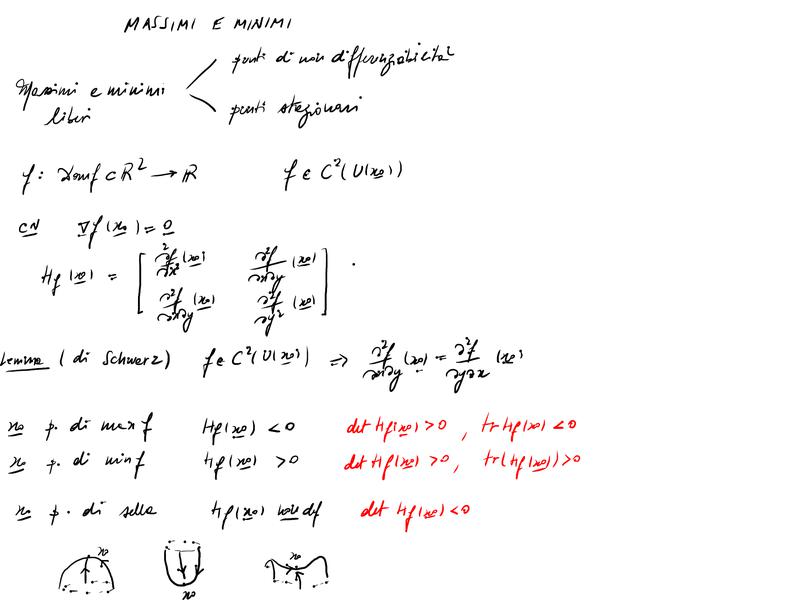 MASSIMI E MINIMI
punti di non differenziabilità
Massimi e minimi
liberi
punti stazionari
f: domf ⊂ R² → R f ∈ C²(U(x0))
CN ∇f(x0) = 0
Hf(x0) = [ ∂²f/∂x² (x0) ∂²f/∂x∂y (x0)
∂²f/∂x∂y (x0) ∂²f/∂y² (x0) ]
Lemma (di Schwarz) f ∈ C²(U(x0)) ⇒ ∂²f/∂x∂y (x0) = ∂²f/∂y∂x (x0)
x0 p. di max f Hf(x0) < 0 det Hf(x0) > 0 , tr Hf(x0) < 0
x0 p. di min f Hf(x0) > 0 det Hf(x0) > 0, tr(Hf(x0)) > 0
x0 p. di sella Hf(x0) non df det Hf(x0) < 0
x0 x0 x0